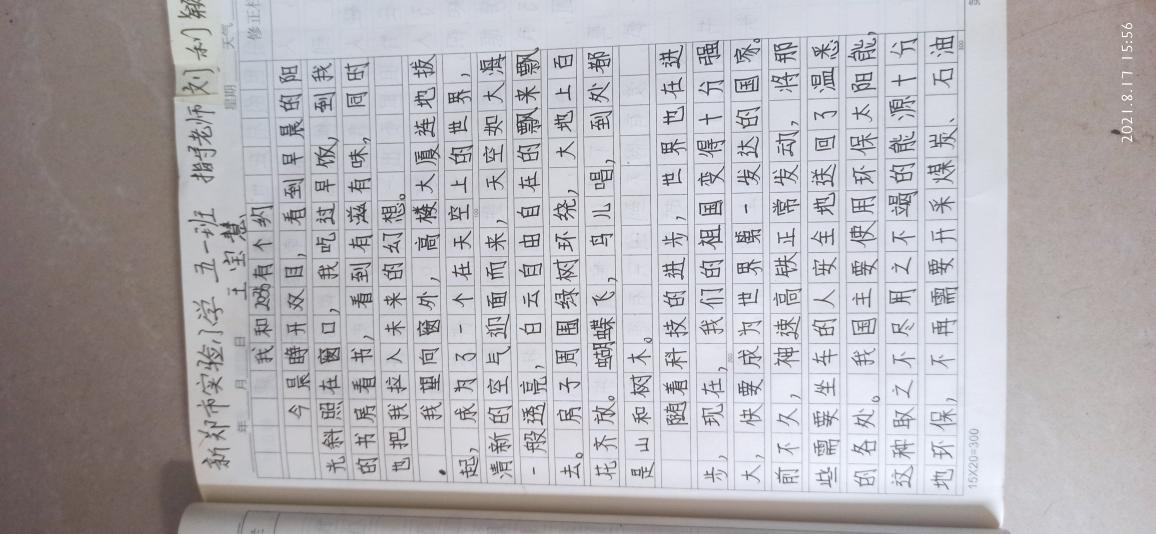 新郑市实验小学 五一班 指导老师 刘利颖
王宝慧
年 月 日 星期 天气
修正栏
我和2035有个约
今晨睁开双目，看到早晨的阳
光斜照在窗口，我吃过早饭，到我
的书房看书，看到有滋有味，同时
也把我拉入未来的幻想。
我望向窗外，高楼大厦连地拔
起，成为了一个在天空上的世界，
清新的空气迎面而来，天空如大海
一般透亮，白云自由自在的飘来飘
去。房子周围绿树环绕，大地上百
花齐放。蝴蝶飞，鸟儿唱，到处都
是山和树木。
随着科技的进步，世界也在进
步，现在，我们的祖国变得十分强
大，快要成为世界第一发达的国家。
前不久，神速高铁正常发动，将那
些需要坐车的人安全地送回了温悉
的各处。我国主要使用环保太阳能，
这种取之不尽用之不竭的能源十分
地环保，不再需要开采煤炭、石油
15X20=300
2021.8.17 15:56